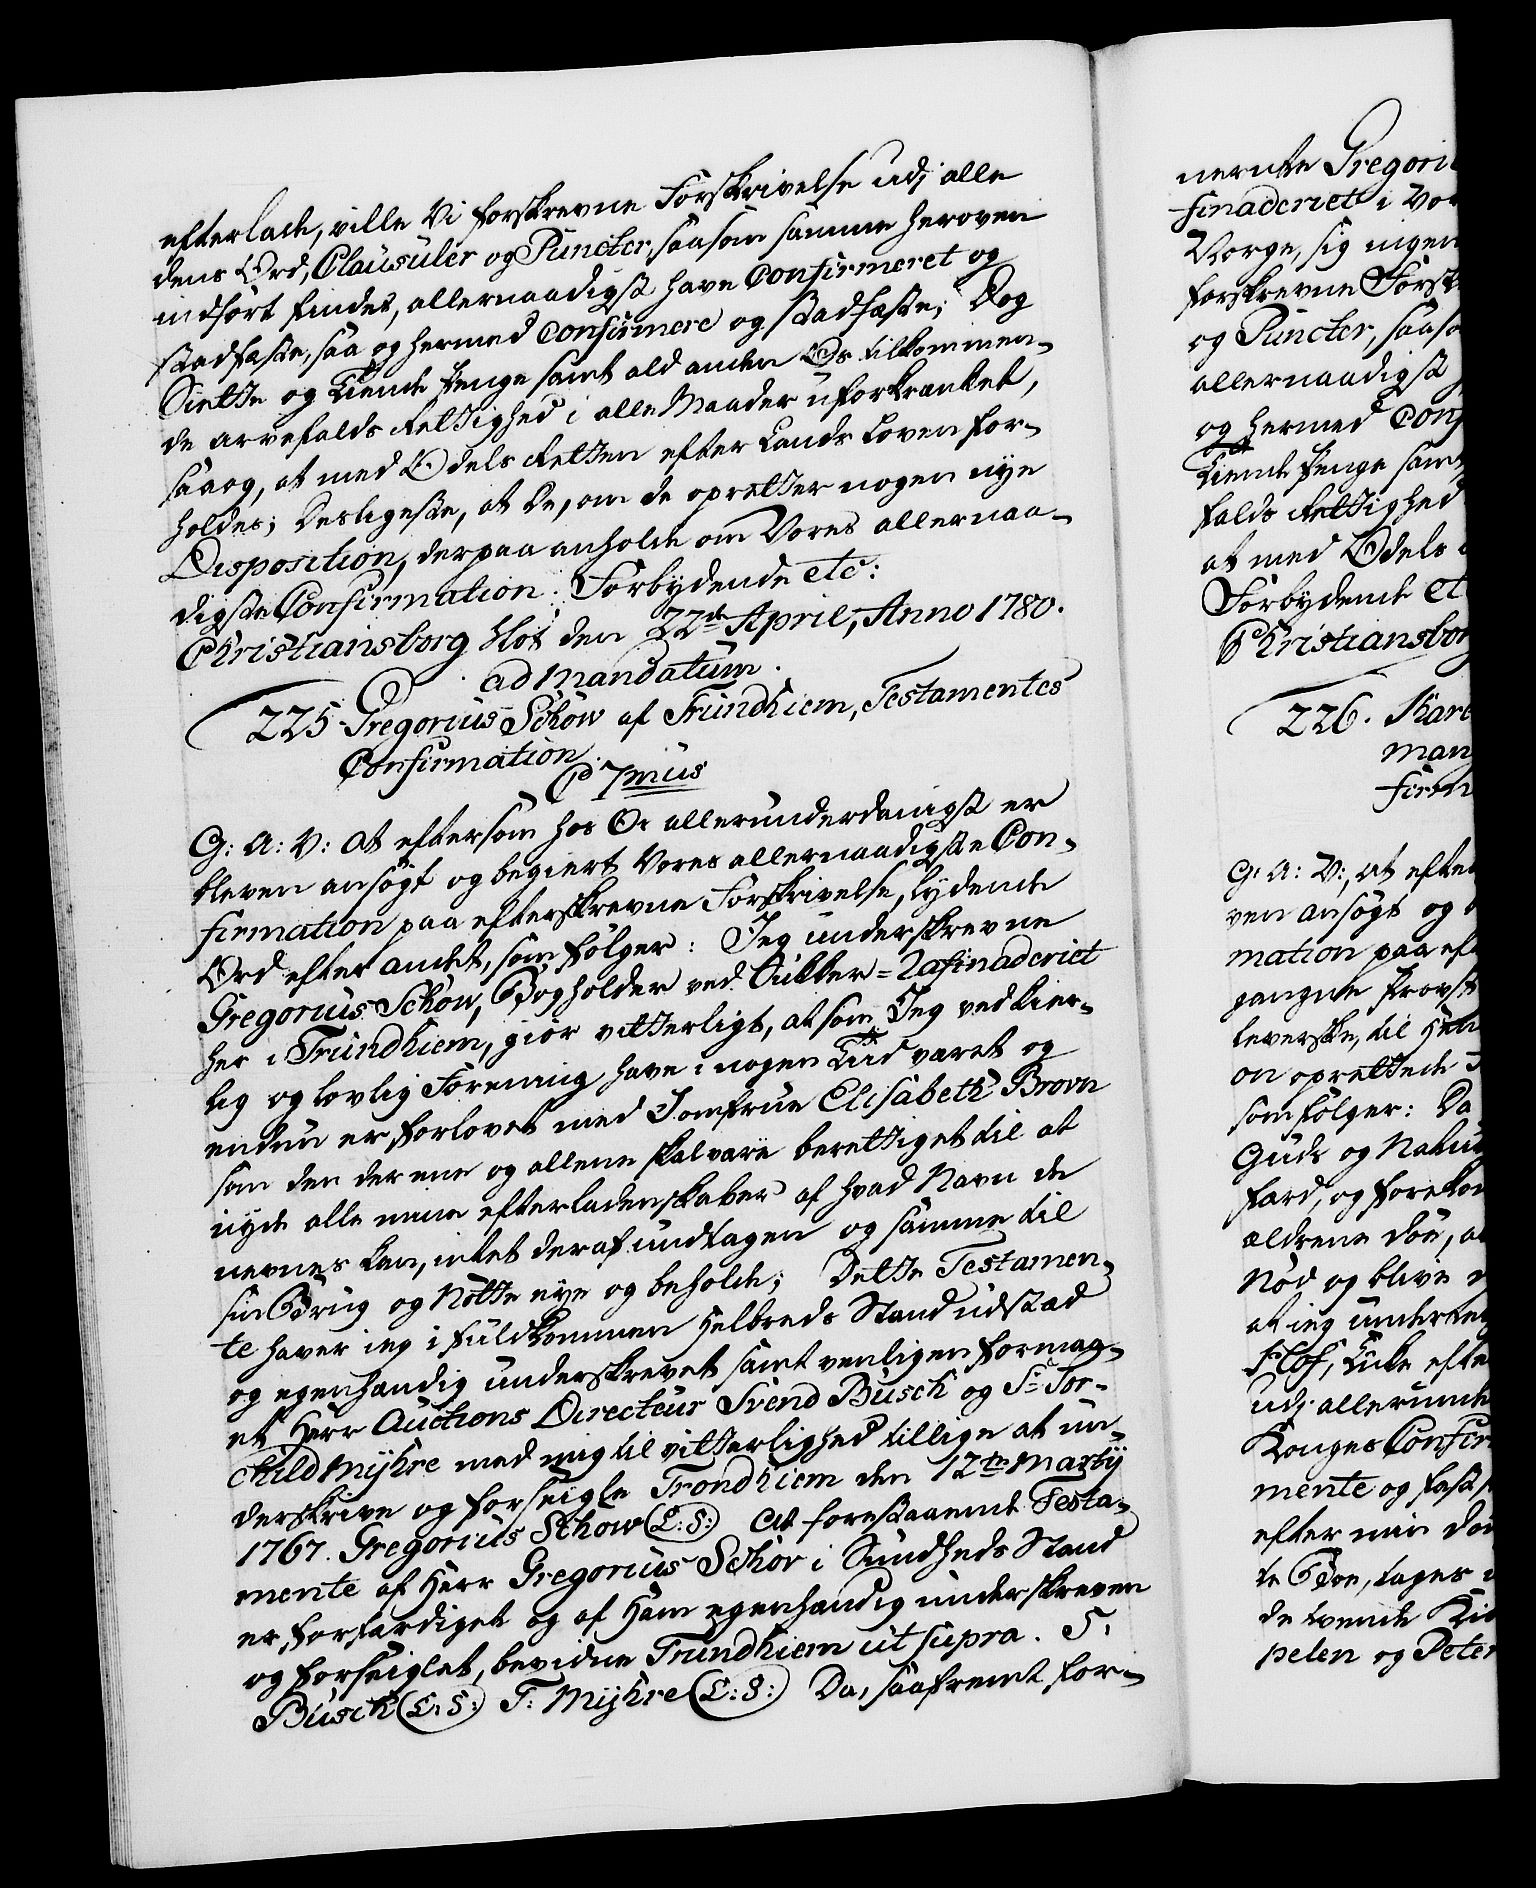 efterlade, ville Vi forskrevne Forskrivelse udj alle
dens Ord, Clausuler og Puncter, saasom samme heroven
indført findes, allernaadigst have Confirmeret og
stadfæste, saa og hermed Confirmere og stadfæste; Dog
Siette og Tiende Penge samt ald anden Os tilkommen-
de arvefalds Rettighed i alle Maader uforkrænket,
saa og, at med Odels Retten efter Lands Loven for-
holdes; Desligeste, at De, om de opretter nogen nye
Disposition, derpaa anholde om Vores allernaa-
digste Confirmation. Forbydende etc:
Christiansborg Slot den 22de April, Anno 1780.
ad Mandatum.
225. Gregorius Schow af Trundhiem, Testamentes
Confirmation.
C 7mus
G: A: V: At eftersom hos Os allerunderdanigst er
bleven ansøgt og begiert Vores allernaadigste Con-
firmation paa efterskrevne Forskrivelse, lydende
Ord efter andet, som følger: Jeg underskrevne
Gregorius Schow, Bogholder ved Sukker=Rafinaderiet
her i Trundhiem, giør vitterligt, at som Jeg ved kier-
lig og lovlig Forening have i nogen Tiid været og
endnu er forlovet med Jomfrue Elisabeth Brown
som den der ene og allene skal være berettiget til at
nyde alle mine efterladenskaber af hvad Navn de
nevnes kan, intet deraf undtagen og samme til
sin Brug og Nøtte eye og beholde; Dette Testamen-
te haver ieg i fuldkommen Helbreds Stand udstæd
og egenhændig underskrevet samt venligen formaa-
et Herr Auctions Directeur Svend Busch og Sr Tor-
child Mijhre med mig til vitterlighed tillige at un-
derskrive og forseigle Trondhiem den 12te Martij
1767. Gregorius Schow (L: S:) At forestaaende Testa-
mente af Herr Gregorius Schow i Sundheds Stand
er forfærdiget og af Ham egenhændig underskreven
og forseiglet, bevidne Trundhiem ut supra. S.
Busch (L: S:) T: Mijhre (L: S:) Da, saafremt for-
nevnte Gregori
finaderiet i
Norge, sig ingen
forskrevne Forsk
og Puncter, saaso
allernaadigst
og hermed Conf
Tiende Penge samt
falds Rettighed
at med Odels
Forbydende et
Christiansbor
226. Kar
man
firm
G: A: V:, at efter
ven ansøgt og
mation paa eft
gangne Provst
leverske, til
on oprettede
som følger: Da
Guds og Natur
færd, og forekom
ældrene døe,
Nød og blive
at ieg underteg
efte
udj allerunde
Konges Confir
mente og fast
efter min død
te Boe, tages
de tvende
pelen og Peter